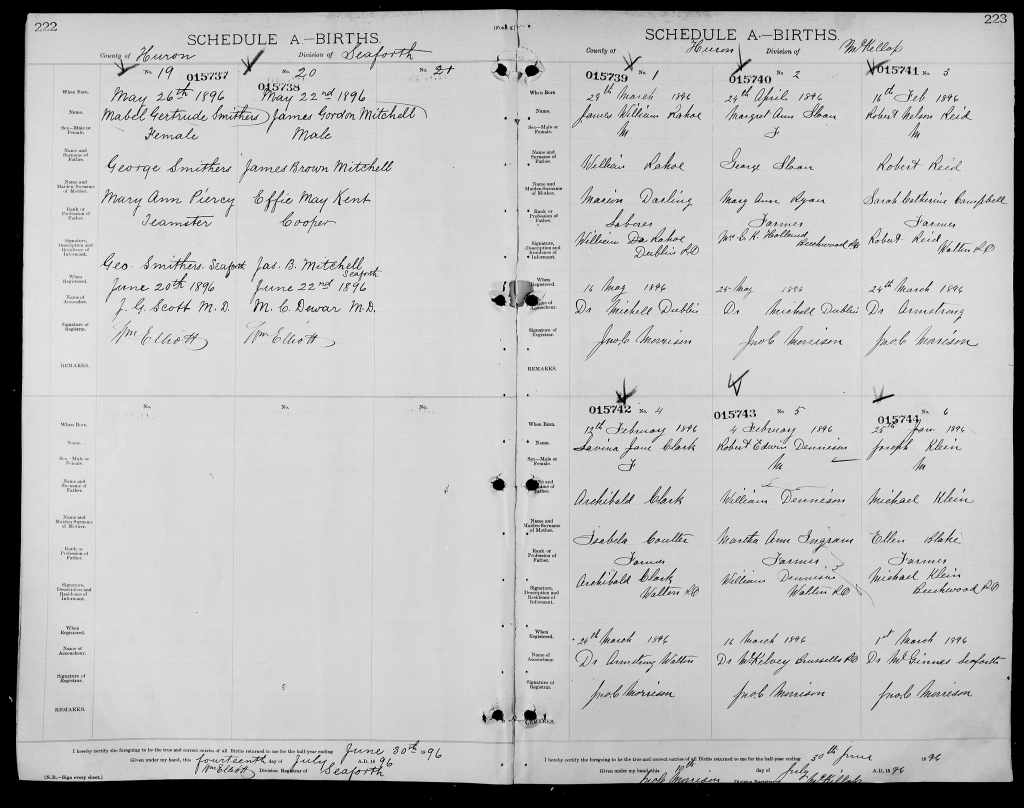 222
(Form 4)
SCHEDULE A.—BIRTHS.
County of Huron Division of Seaforth
No. 19 015737 No. 20 015738 No. 21
When Born. May 26th 1896 May 22nd 1896
Name. Mabel Gertrude Smithers James Gordon Mitchell
Sex—Male or Female. Female Male
Name and Surname of Father. George Smithers James Brown Mitchell
Name and Maiden Surname of Mother. Mary Ann Piercy Effie May Kent
Rank or Profession of Father. Teamster Cooper
Signature, Description and Residence of Informant. Geo. Smithers. Seaforth Jas. B. Mitchell Seaforth
When Registered. June 20th 1896 June 22nd 1896
Name of Accoucheur. J. G. Scott M.D. M. C. Dewar M.D.
Signature of Registrar. Wm Elliott Wm Elliott
REMARKS.
No. No. No.
When Born.
Name.
Sex—Male or Female.
Name and Surname of Father.
Name and Maiden Surname of Mother.
Rank or Profession of Father.
Signature, Description and Residence of Informant.
When Registered.
Name of Accoucheur.
Signature of Registrar.
REMARKS.
I hereby certify the foregoing to be the true and correct entries of all Births returned to me for the half-year ending June 30th 1896
Given under my hand, this fourteenth day of July A.D. 1896
Wm Elliott Division Registrar of Seaforth
(N.B.—Sign every sheet.)
223
SCHEDULE A.—BIRTHS.
County of Huron Division of McKillop
015739 No. 1 015740 No. 2 015741 No. 3
When Born. 29th March 1896 24th April 1896 16th Feb 1896
Name. James William Rahoe Margret Ann Sloan Robert Nelson Reid
Sex—Male or Female. M F M
Name and Surname of Father. William Rahoe George Sloan Robert Reid
Name and Maiden Surname of Mother. Marion Darling Mary Ann Ryan Sarah Catherine Campbell
Rank or Profession of Father. Laborer Farmer Farmer
Signature, Description and Residence of Informant. William Rahoe Dublin P.O Mrs C. K. Holland Beechwood P.O Robert Reid Walton P.O
When Registered. 16 May 1896 25 May 1896 24th March 1896
Name of Accoucheur. Dr Michell Dublin Dr Michell Dublin Dr Armstrong
Signature of Registrar. Jno. C Morrison Jno. C Morrison Jno. C Morrison
REMARKS.
015742 No. 4 015743 No. 5 015744 No. 6
When Born. 12th February 1896 4 February 1896 25th Jan 1896
Name. Lavina Jane Clark Robert Edwin Dennison Joseph Klein
Sex—Male or Female. F M M
Name and Surname of Father. Archibald Clark William Dennison Michael Klein
Name and Maiden Surname of Mother. Isabela Coulter Martha Ann Ingram Ellen Blake
Rank or Profession of Father. Farmer Farmer Farmer
Signature, Description and Residence of Informant. Archibald Clark Walton P.O William Dennison Walton P.O Michael Klein Beechwood P.O
When Registered. 26th March 1896 16 March 1896 1st March 1896
Name of Accoucheur. Dr Armstrong Walton Dr McKelvey Brussells P.O Dr McGinnes Seaforth
Signature of Registrar. Jno. C Morrison Jno. C Morrison Jno. C Morrison
REMARKS.
I hereby certify the foregoing to be the true and correct entries of all Births returned to me for the half-year ending 30th June 1896
Given under my hand, this day of July A.D. 1896
Jno. C Morrison Division Registrar McKillop